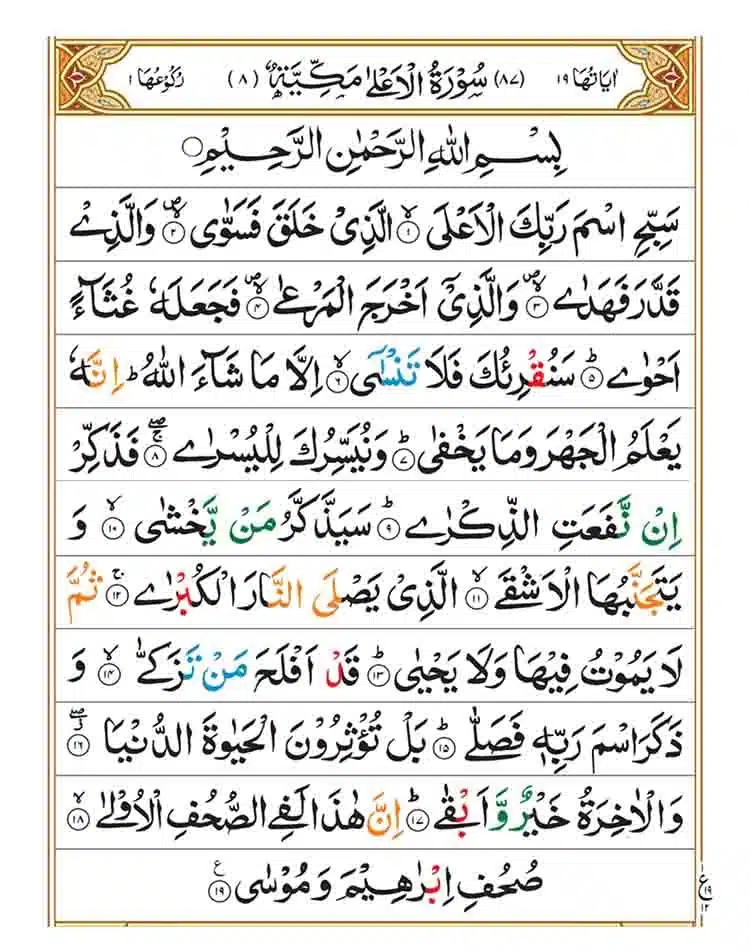 اٰيَاتُهَا ١٩ (٨٧) سُوْرَةُ الْاَعْلٰى مَكِّيَّةٌ (٨) رُكُوْعُهَا ١
بِسْمِ اللّٰهِ الرَّحْمٰنِ الرَّحِيْمِ
سَبِّحِ اسْمَ رَبِّكَ الْاَعْلَى ۙ﴿١﴾ الَّذِيْ خَلَقَ فَسَوّٰى ۪ۙ﴿٢﴾ وَالَّذِيْ
قَدَّرَ فَهَدٰى ۪ۙ﴿٣﴾ وَالَّذِيْٓ اَخْرَجَ الْمَرْعٰى ۪ۙ﴿٤﴾ فَجَعَلَهٗ غُثَآءً
اَحْوٰى ؕ﴿٥﴾ سَنُقْرِئُكَ فَلَا تَنْسٰٓى ۙ﴿٦﴾ اِلَّا مَا شَآءَ اللّٰهُ ؕ اِنَّهٗ
يَعْلَمُ الْجَهْرَ وَمَا يَخْفٰى ؕ﴿٧﴾ وَنُيَسِّرُكَ لِلْيُسْرٰى ۚۖ﴿٨﴾ فَذَكِّرْ
اِنْ نَّفَعَتِ الذِّكْرٰى ؕ﴿٩﴾ سَيَذَّكَّرُ مَنْ يَّخْشٰى ۙ﴿١٠﴾ وَ
يَتَجَنَّبُهَا الْاَشْقَى ۙ﴿١١﴾ الَّذِيْ يَصْلَى النَّارَ الْكُبْرٰى ۚ﴿١٢﴾ ثُمَّ
لَا يَمُوْتُ فِيْهَا وَلَا يَحْيٰى ؕ﴿١٣﴾ قَدْ اَفْلَحَ مَنْ تَزَكّٰى ۙ﴿١٤﴾ وَ
ذَكَرَ اسْمَ رَبِّهٖ فَصَلّٰى ؕ﴿١٥﴾ بَلْ تُؤْثِرُوْنَ الْحَيٰوةَ الدُّنْيَا ۖ﴿١٦﴾
وَالْاٰخِرَةُ خَيْرٌ وَّاَبْقٰى ؕ﴿١٧﴾ اِنَّ هٰذَا لَفِي الصُّحُفِ الْاُوْلٰى ۙ﴿١٨﴾
صُحُفِ اِبْرٰهِيْمَ وَمُوْسٰى ﴿١٩﴾ ع
١
ع ١٩
١٢